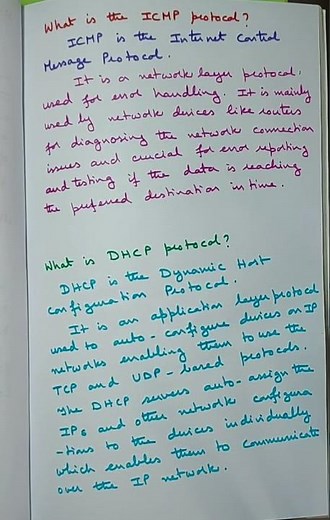 What is the ICMP protocol?
ICMP is the Internet Control
Message Protocol.
It is a network layer protocol,
used for error handling. It is mainly
used by network devices like routers
for diagnosing the network connection
issues and crucial for error reporting
and testing if the data is reaching
the preferred destination in time.
What is DHCP protocol?
DHCP is the Dynamic Host
Configuration Protocol.
It is an application layer protocol
used to auto-configure devices on IP
networks enabling them to use the
TCP and UDP-based protocols.
The DHCP servers auto-assign the
IPs and other network configura
-tions to the devices individually
which enables them to communicate
over the IP network.